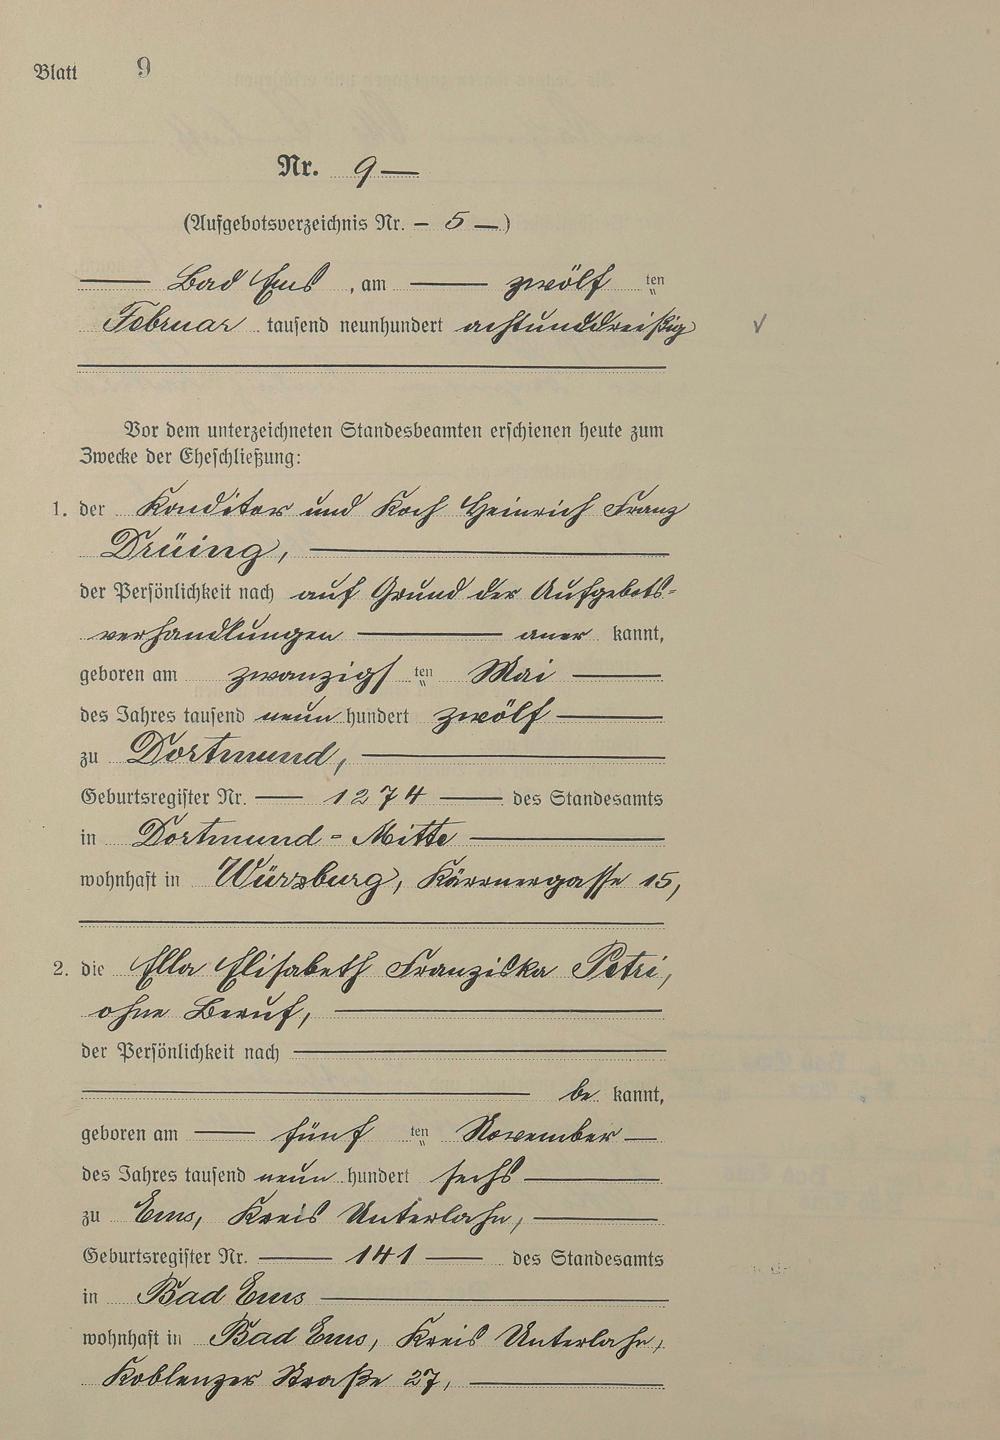 Blatt 9
Nr. 9 —
(Aufgebotsverzeichnis Nr. – 5 – )
— Bad Ems , am — zwölf ten
Februar tausend neunhundert achtunddreißig
Vor dem unterzeichneten Standesbeamten erschienen heute zum
Zwecke der Eheschließung:
1. der Konditor und Koch Heinrich Franz
Drüing, —
der Persönlichkeit nach auf Grund der Aufgebots-
verhandlungen — aner kannt,
geboren am zwanzigs ten Mai —
des Jahres tausend neun hundert zwölf —
zu Dortmund, —
Geburtsregister Nr. — 1274 — des Standesamts
in Dortmund - Mitte —
wohnhaft in Würzburg, Kärrnergasse 15,
2. die Ella Elisabeth Franziska Petri,
ohne Beruf, —
der Persönlichkeit nach —
— be kannt,
geboren am — fünf ten November —
des Jahres tausend neun hundert sechs —
zu Ems, Kreis Unterlahn, —
Geburtsregister Nr. — 141 — des Standesamts
in Bad Ems —
wohnhaft in Bad Ems, Kreis Unterlahn,
Koblenzer Straße 27, —